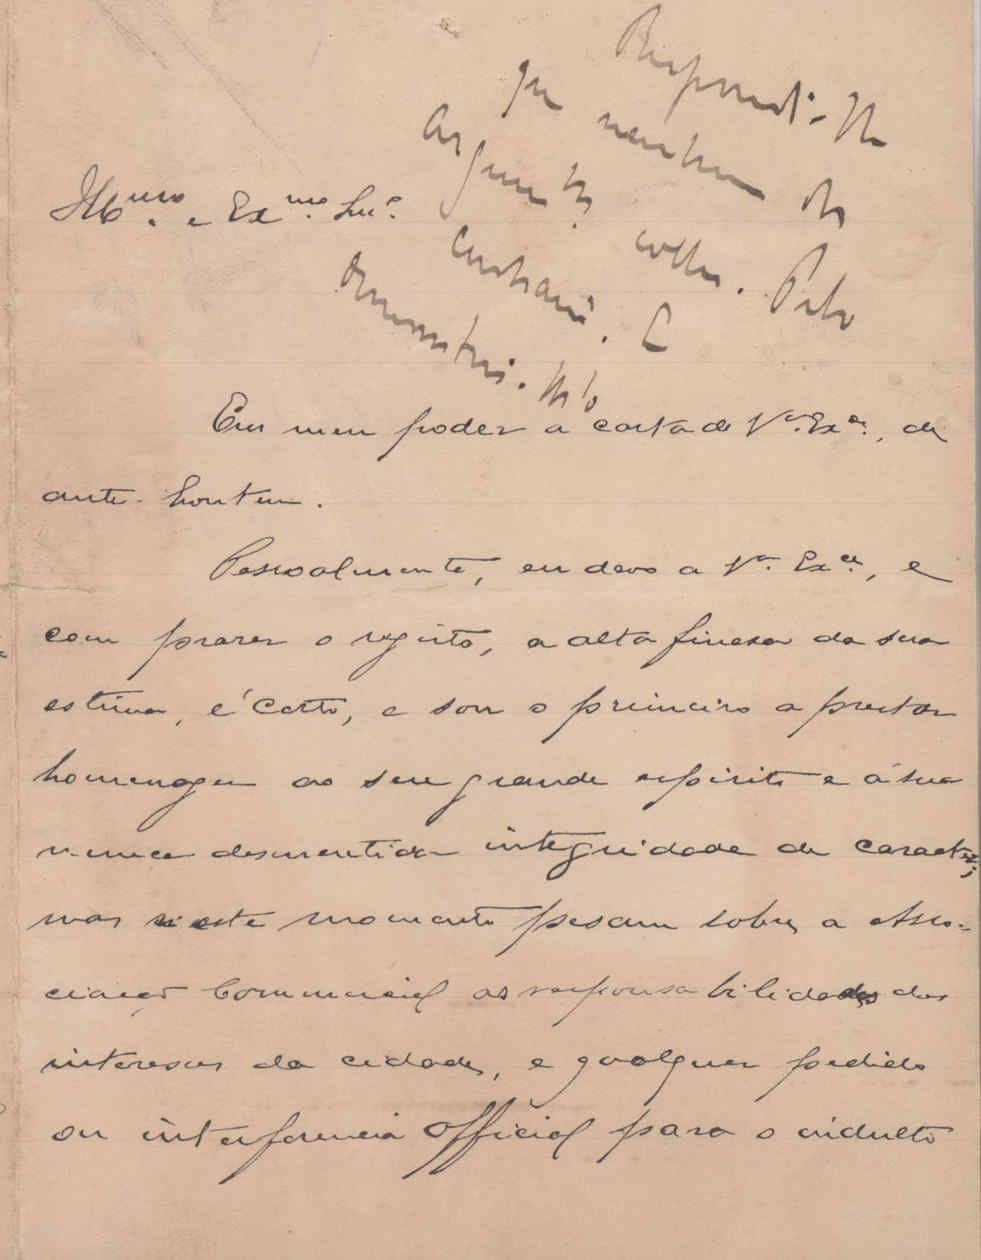 Respondi-lhe
que nenhum dos
argumentos colhe. Pelo
contrario. E
demonstrei-lh'o
Illmo. e Exmo. Snr.
Em meu poder a carta de Va. Exa., de
ante-hontem.
Pessoalmente, eu devo a Va. Exa., e
com prazer o registo, a alta fineza da sua
estima, é certo, e sou o primeiro a prestar
homenagem ao seu grande espirito e á sua
nunca desmentida integridade de caracter;
mas n'este momento pesam sobre a Asso-
ciação Commercial as responsabilidades dos
interesses da cidade, e qualquer pedido
ou interferencia official para o indulto